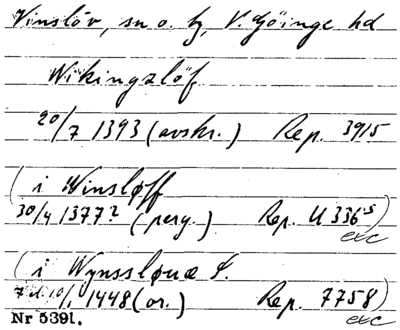 Vinslöv, sn o. by, V. Göinge hd
Wikingzlöf
20/7 1393 (avskr.) Rep. 3915
(i Winsløff
30/4 1377? (perg.) Rep. U 336⁵)
exc
(i Wynssløuæ S.
7 d. 10/1 1448 (or.) Rep. 7758)
exc
Nr 5391.